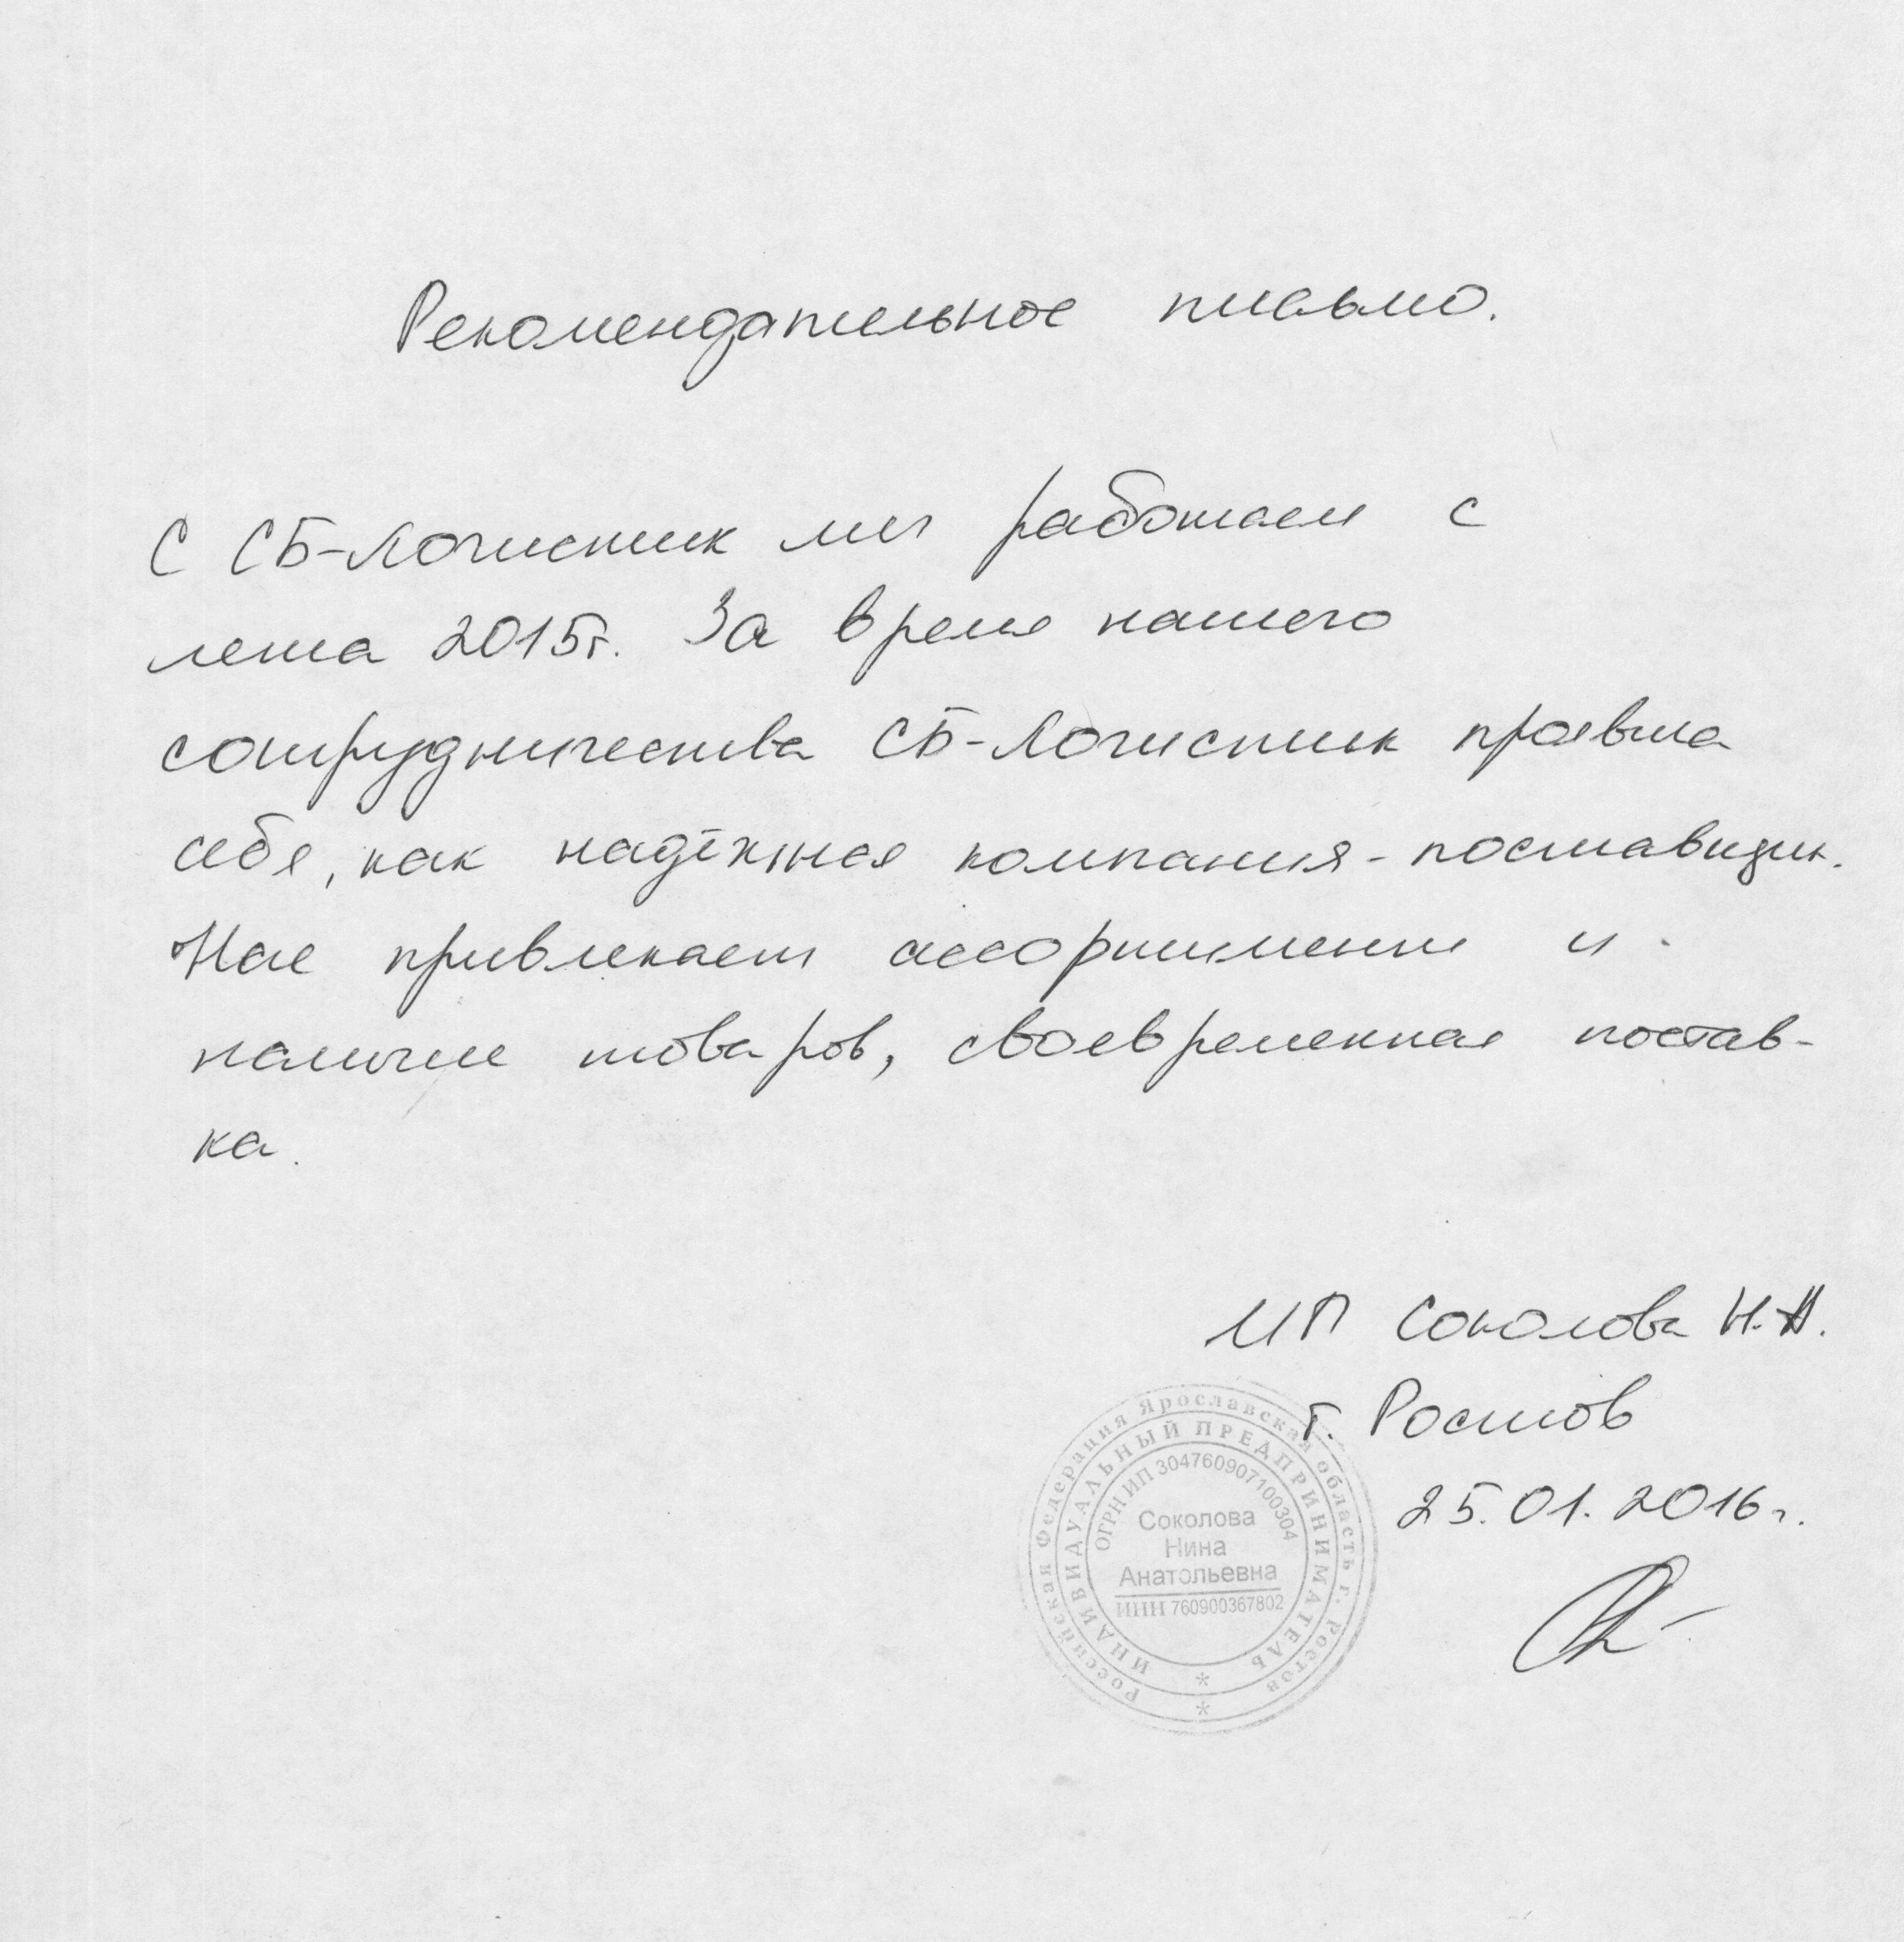 Рекомендательное письмо.
С СБ-Логистик мы работаем с
лета 2015г. За время нашего
сотрудничества СБ-Логистик проявила
себя, как надёжная компания-поставщик.
Нас привлекает ассортимент и
наличие товаров, своевременная постав-
ка.
ИП Соколова Н.А.
г. Ростов
25.01.2016г.
Российская Федерация Ярославская область г. Ростов
ИНДИВИДУАЛЬНЫЙ ПРЕДПРИНИМАТЕЛЬ
ОГРН ИП 304760907100304
Соколова
Нина
Анатольевна
ИНН 760900367802